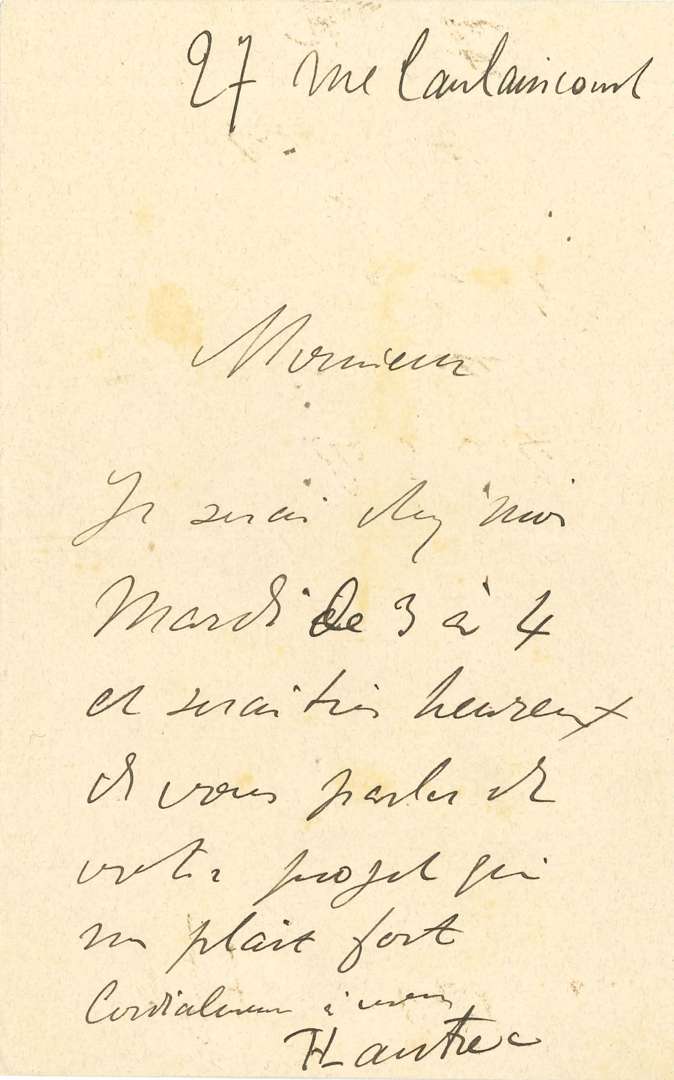 27 rue Caulaincourt
Monsieur
Je serai chez moi
Mardi de 3 à 4
et serai très heureux
de vous parler de
votre projet qui
me plait fort
Cordialement à vous
HLautrec